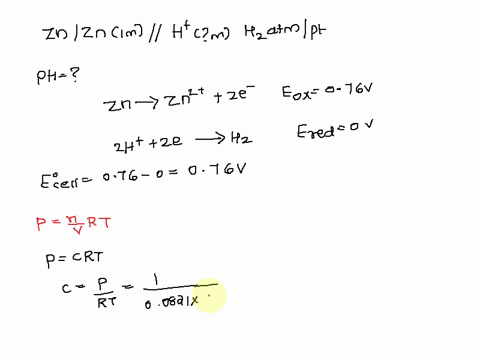 Zn/Zn(1m) // H⁺(?m) H₂ atm/pt
PH=?
Zn → Zn²⁺ + 2e⁻ Eox = 0.76V
2H⁺ + 2e → H₂ Ered = 0 V
E°cell = 0.76 - 0 = 0.76V
P = n/V RT
P = CRT
C = P/RT = 1/0.0821x